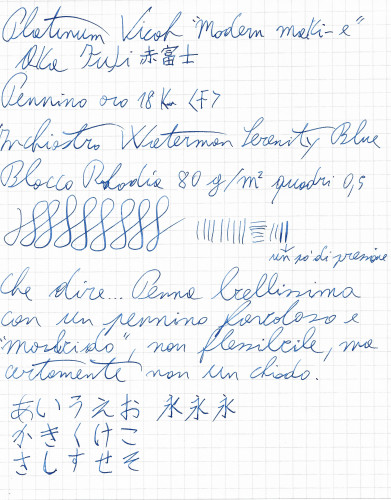 Platinum Vicoh "Modern maki-e"
Aka Fuji 赤富士
Pennino oro 18 K <F>
Inchiostro Waterman Serenity Blue
Blocco Rhodia 80 g/m² quadri 0,5
un pò di pressione
Che dire... Penna bellissima
con un pennino favoloso e
"morbido", non flessibile, ma
certamente non un chiodo.
あいうえお 永永永
かきくけこ
さしすせそ